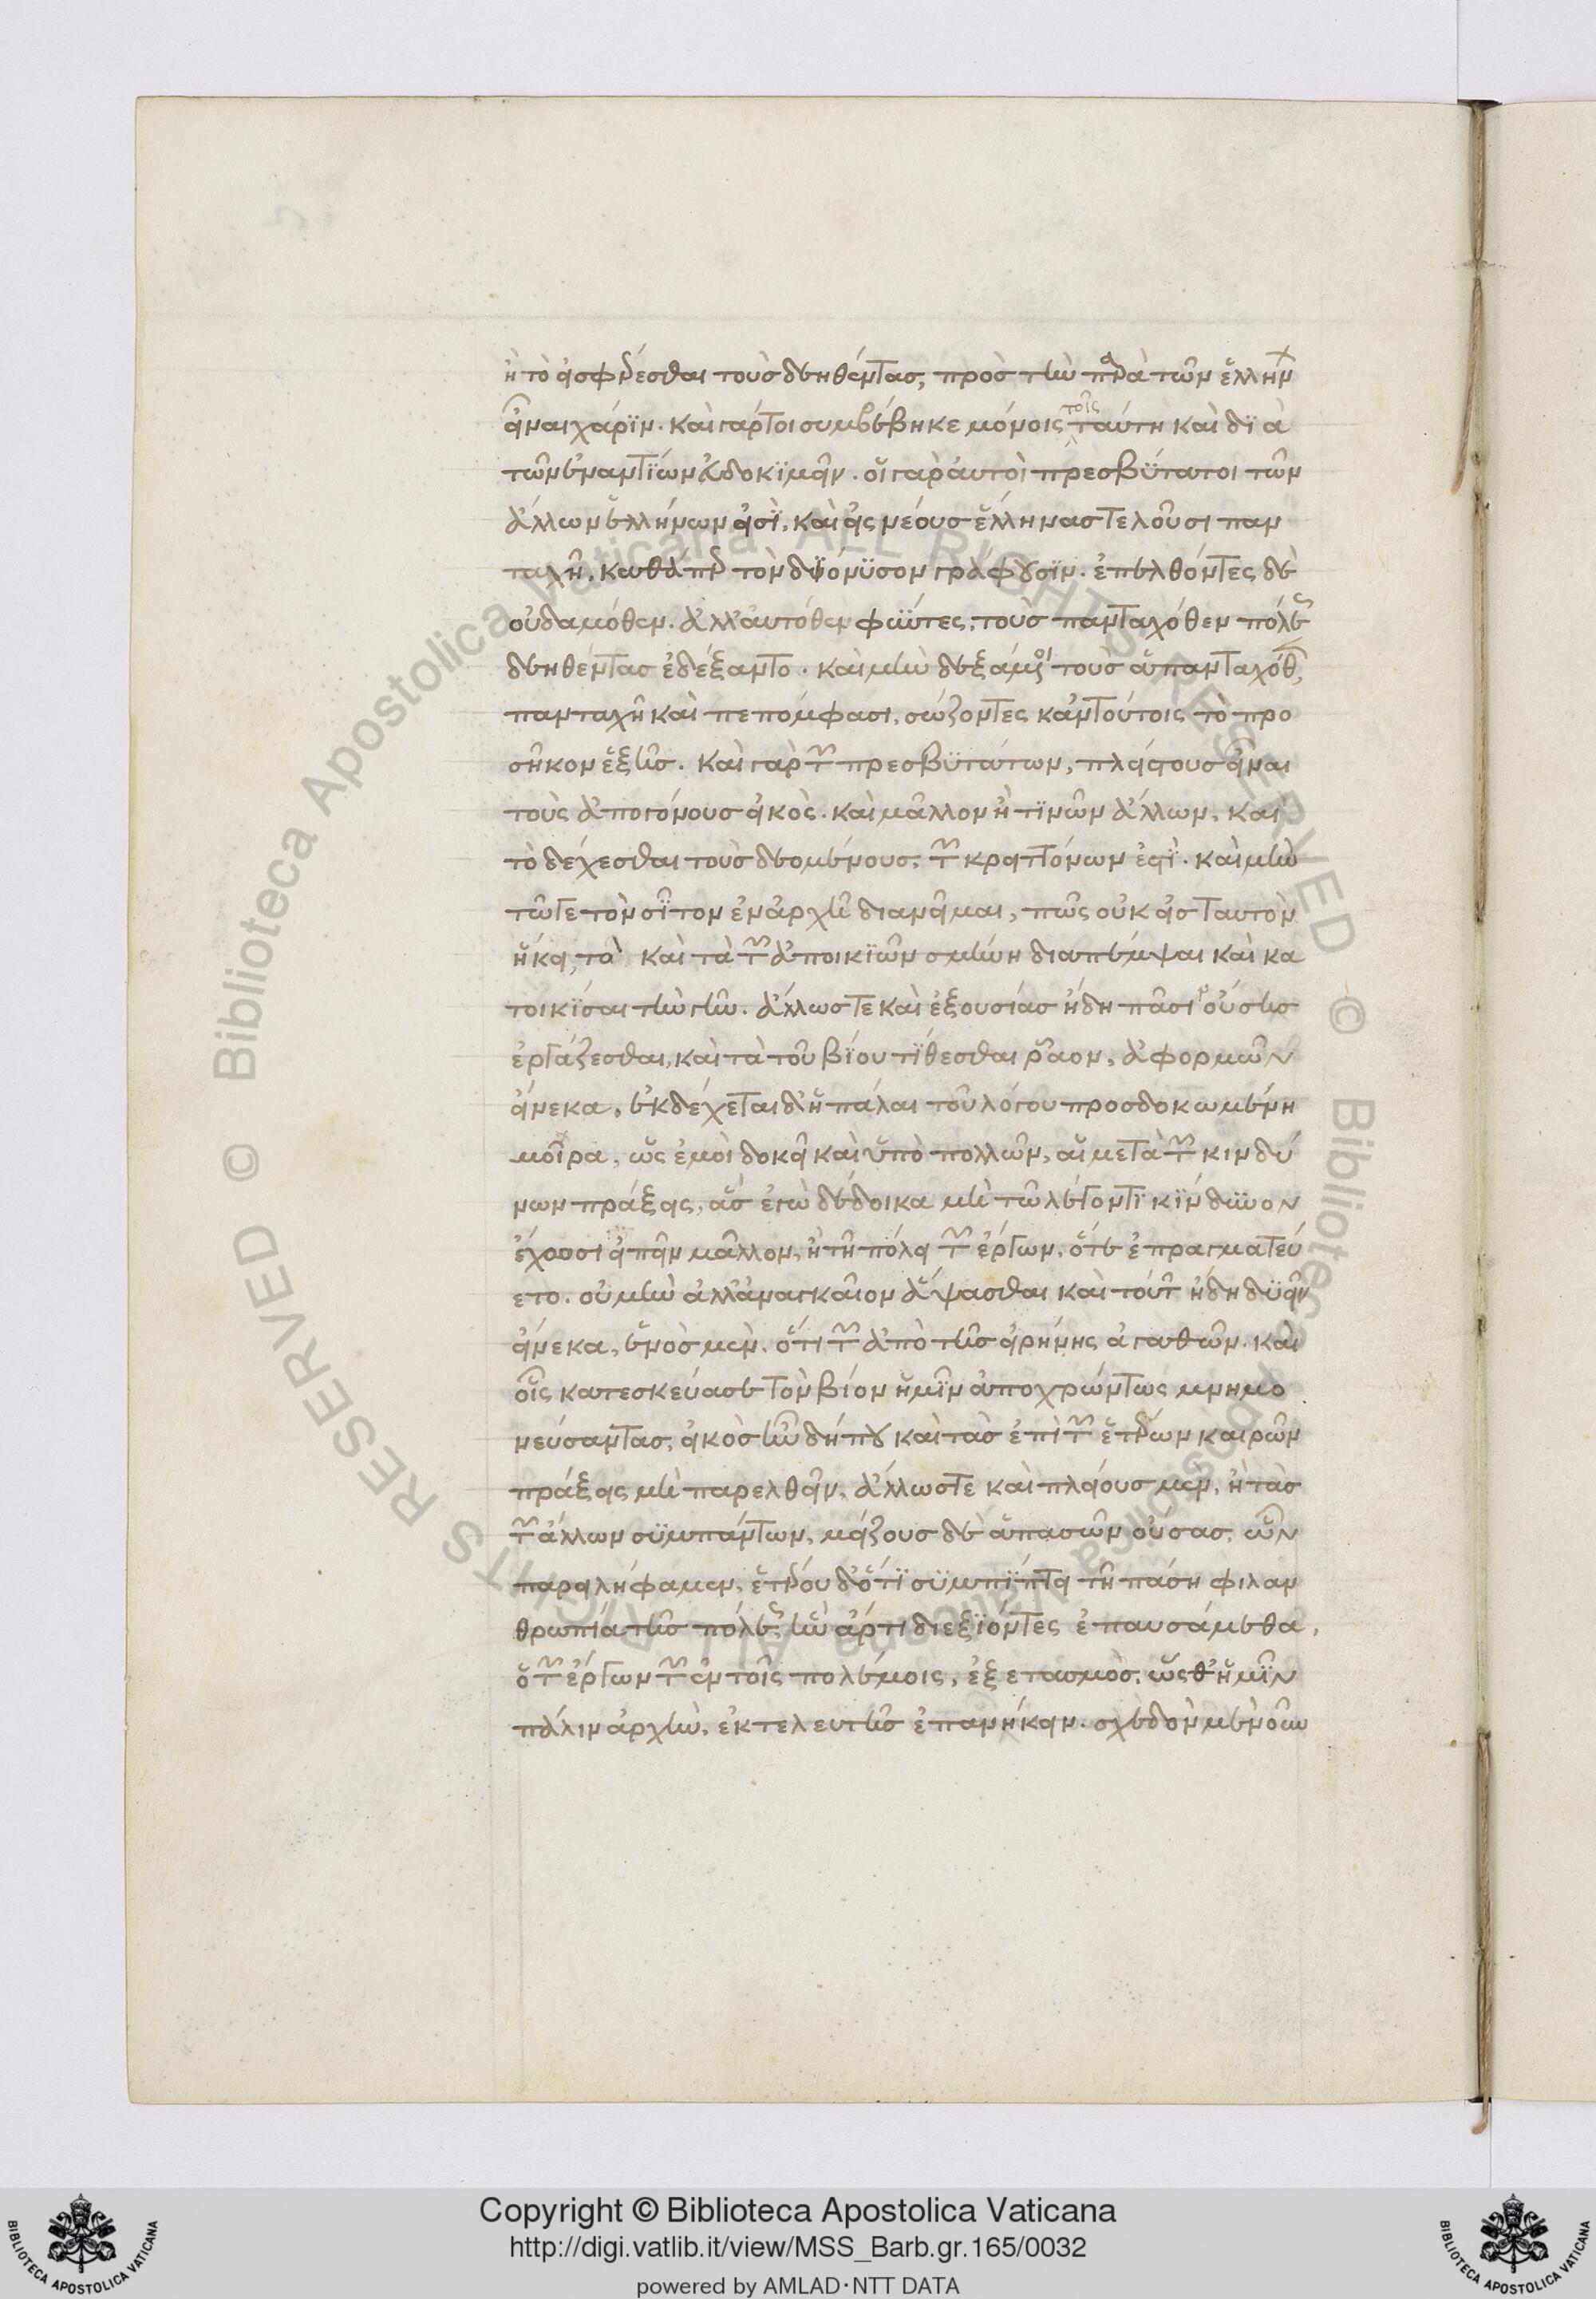 ἢ τὸ εἰσφρέσθαι τοὺς δεηθέντας, πρὸς τὴν παρὰ τῶν ἑλλήνων
εἶναι χάριν. καὶ γάρ τοι συμβέβηκε μόνοις τοῖς ταύτῃ καὶ διὰ
τῶν ἐναντίων εὐδοκιμεῖν. οἱ γὰρ αὐτοὶ πρεσβύτατοι τῶν
ἄλλων ἑλλήνων εἰσὶ, καὶ εἰς νέους ἕλληνας τελοῦσι παν
ταχῇ, καθάπερ τὸν διόνυσον γράφουσιν. ἐπελθόντες δὲ
οὐδαμόθεν. ἀλλ' αὐτόθεν φύντες, τοὺς πανταχόθεν πόλεως
δεηθέντας ἐδέξαντο. καὶ μὴν δεξάμενοι τοὺς ἁπανταχόθεν,
πανταχῇ καὶ πεπόμφασι, σώζοντες κἀν τούτοις τὸ προ
σῆκον ἑξῆς. καὶ γὰρ τῶν πρεσβυτάτων, πλείστους εἶναι
τοὺς ἀπογόνους εἰκὸς. καὶ μᾶλλον ἤ τινῶν ἄλλων. καὶ
τὸ δέχεσθαι τοὺς δεομένους, τῶν κρειττόνων ἐστὶ. καὶ μὴν
τῷ γε τὸν σῖτον ἐν ἀρχῇ διανεῖμαι, πῶς οὐκ εἰς ταυτὸν
ἥκει, τὸ καὶ τὰ τῶν ἀποικιῶν σμήνη διαπέμψαι καὶ κα
τοικίσαι τὴν γῆν. ἄλλως τε καὶ ἐξουσίας ἤδη πᾶσιν οὔσης
ἐργάζεσθαι, καὶ τὰ τοῦ βίου τίθεσθαι ῥᾷον, ἀφορμῶν
εἵνεκα. ἐκδέχεται δ' ἡ πάλαι τοῦ λόγου προσδοκωμένη
μοῖρα, ὡς ἐμοὶ δοκεῖ καὶ ὑπὸ πολλῶν, αἱ μετὰ τῶν κινδύ
νων πράξεις, ἃς ἐγὼ δέδοικα μὴ τῷ λέγοντι κίνδυνον
ἔχουσι εἰπεῖν μᾶλλον, ἢ τῇ πόλει τῶν ἔργων, ὅτε ἐπραγματεύ
ετο. οὐ μὴν ἀλλ' ἀναγκαῖον ἅψασθαι καὶ τούτων ἤδη δυεῖν
εἵνεκα, ἑνὸς μὲν. ὅτι τῶν ἀπὸ τῆς εἰρήνης ἀγαθῶν. καὶ
οἷς κατεσκεύασε τὸν βίον ἡμῖν ἀποχρώντως μνημο
νεύσαντας, εἰκὸς ἦν δήπου καὶ τὰς ἐπὶ τῶν ἑτέρων καιρῶν
πράξεις μὴ παρελθεῖν, ἄλλως τε καὶ πλείους μὲν, ἢ τὰς
τῶν ἄλλων συμπάντων, μείζους δὲ ἁπασῶν οὔσας, ὧν
παρειλήφαμεν, ἑτέρου δ' ὅτι συμπίπτει τῇ πάσῃ φιλαν
θρωπίᾳ τῆς πόλεως, ἣν ἄρτι διεξιόντες ἐπαυσάμεθα,
ὁ τῶν ἔργων τῶν ἐν τοῖς πολέμοις, ἐξετασμὸς, ὥσθ' ἡμῖν
πάλιν ἀρχὴν, ἐκ τελευτῆς ἐπανήκειν. σχεδὸν μὲν οὖν
Copyright © Biblioteca Apostolica Vaticana
http://digi.vatlib.it/view/MSS_Barb.gr.165/0032
powered by AMLAD·NTT DATA